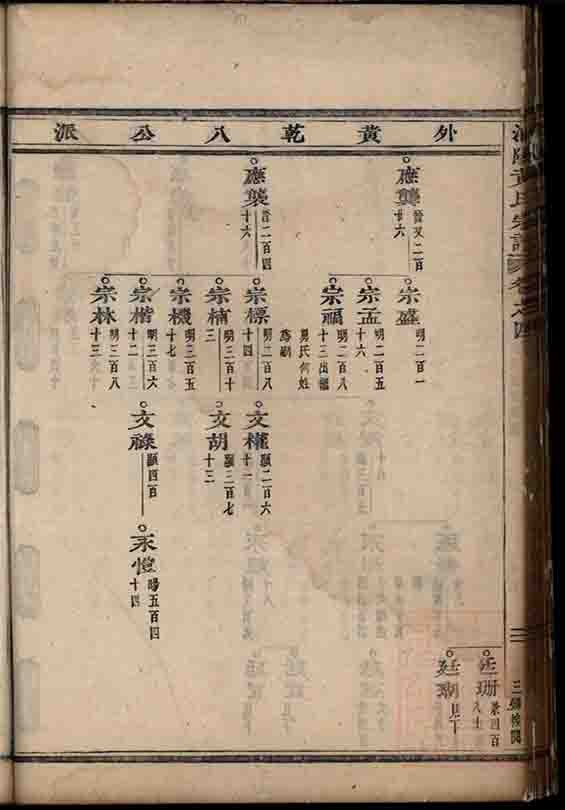 外黄乾八公派
應龔
廿六
宗盛
明二百一
宗孟
明二百五
十六
宗福
明二百八
十三出繼
舅氏何姓
爲嗣
應襲
晉二百四
十六
宗標
明二百八
十四
宗楠
明三百十
三
宗機
明三百五
十七
宗楷
明三百六
十二
宗林
明三百八
十三
文權
顯二百六
十一
文胡
顯三百七
十三
文祿
顯四百
永愷
暘五百四
十四
廷珊
八士
廷瑚
見下
黃氏宗譜
卷之四